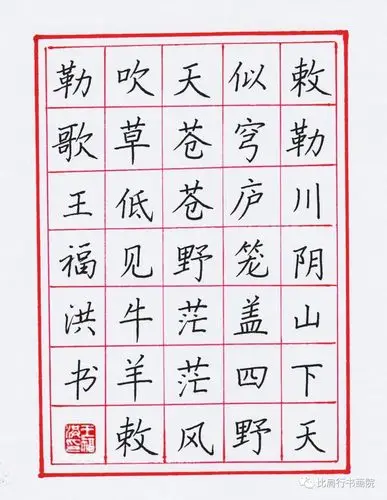 敕勒川阴山下天
似穹庐笼盖四野
天苍苍野茫茫风
吹草低见牛羊敕
勒歌王福洪书
王福洪印
比肩行书画院